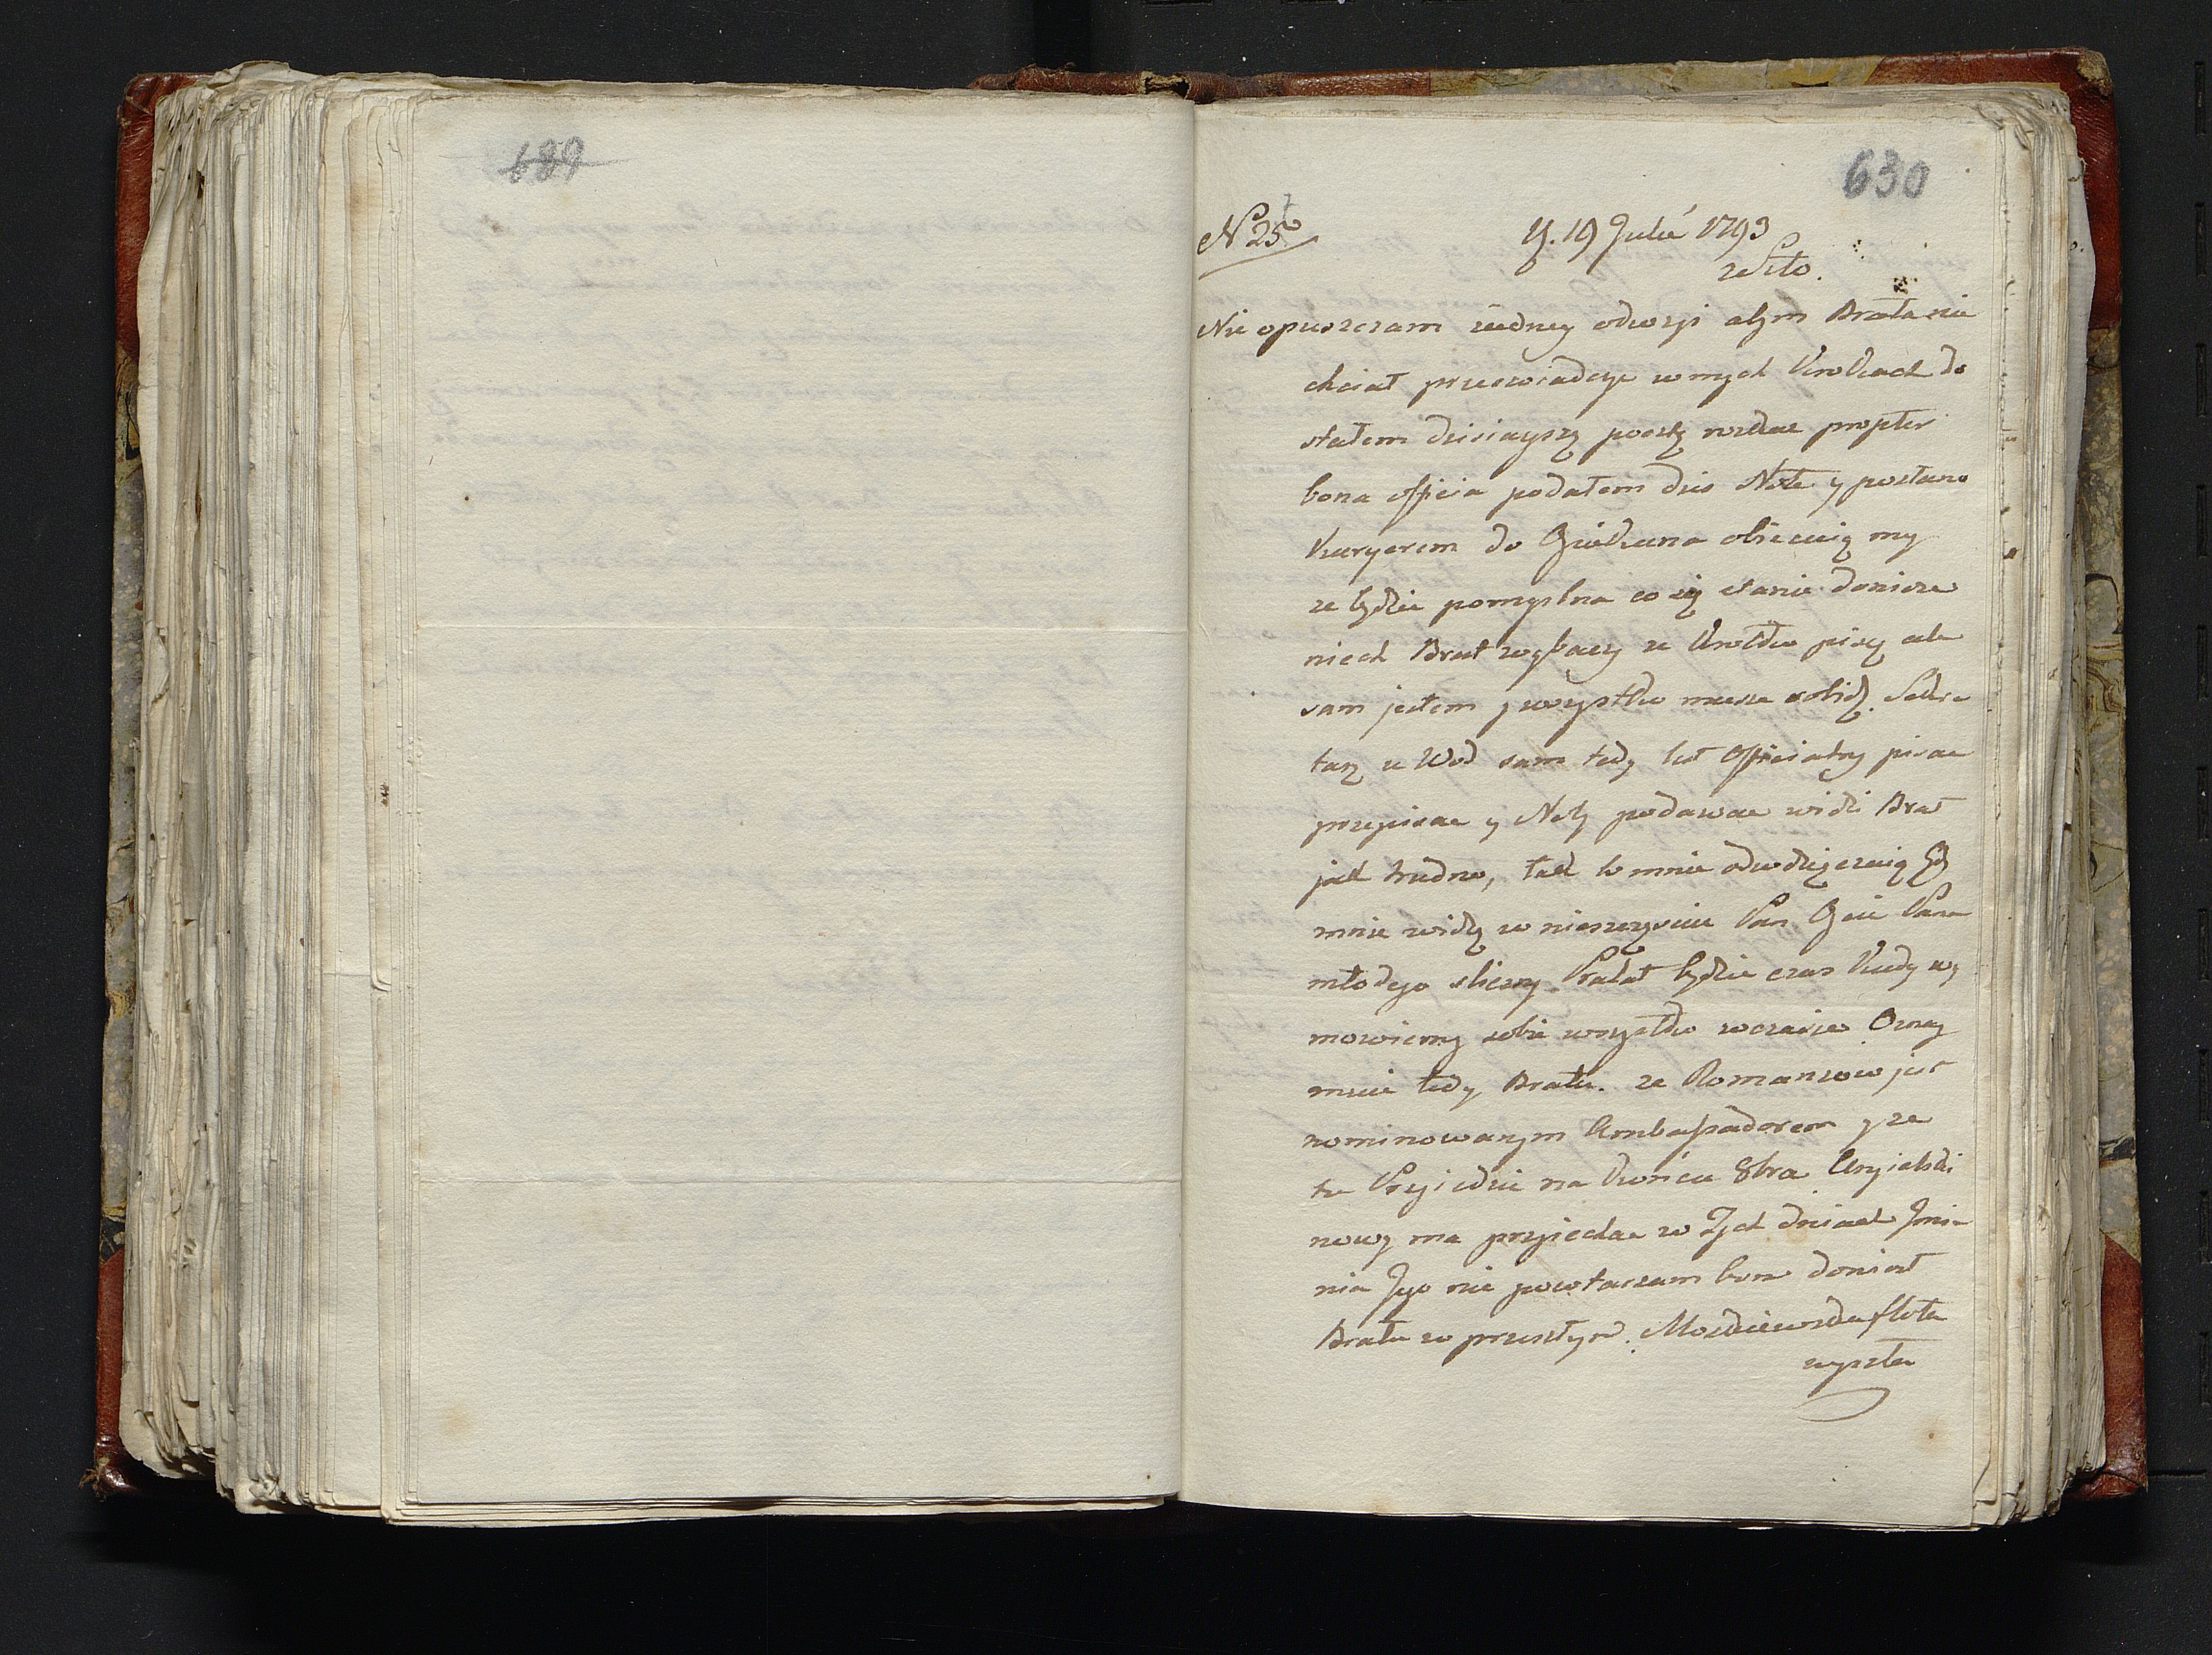 689
630
N 257
19 Julii 1793
ze Sto.
Nie opuszczam żadney odwozi abym Brata nie
chciał przeswiadczyc w mych Krokach do
stałem dzisiayszą pocztą rozkaz propter
bona officia podałem dzis Note y posłano
Kuryerem do
ze będzie pomyslna co się stanie doniose
niech Brat wybaczy ze krotko piszę ale
sam jestem y wszystko musze robić. Sekre
tarz u Wod sam tedy list officialny pisac
przepisac y Noty podawac widzi Brat
jak trudno, tak to mnie odwdzięczaią Gdy
mnie widzą w nieszczęsciu Pan Pana
młodego sliczny Prałat będzie czas kiedy wy
mowiemy sobie wszystko w czasie Ozna
muie tedy Bratu. ze Romanzow jest
nominowanym Ambassadorem y ze
tu Przyiedzie na Koncu 8bra Angielski
nowy ma przyiechac w Tych dniach Jmie
nia Jego nie powtarzam bom doniosł
Bratu w przeszłym. Moskiewska flota
wyszła